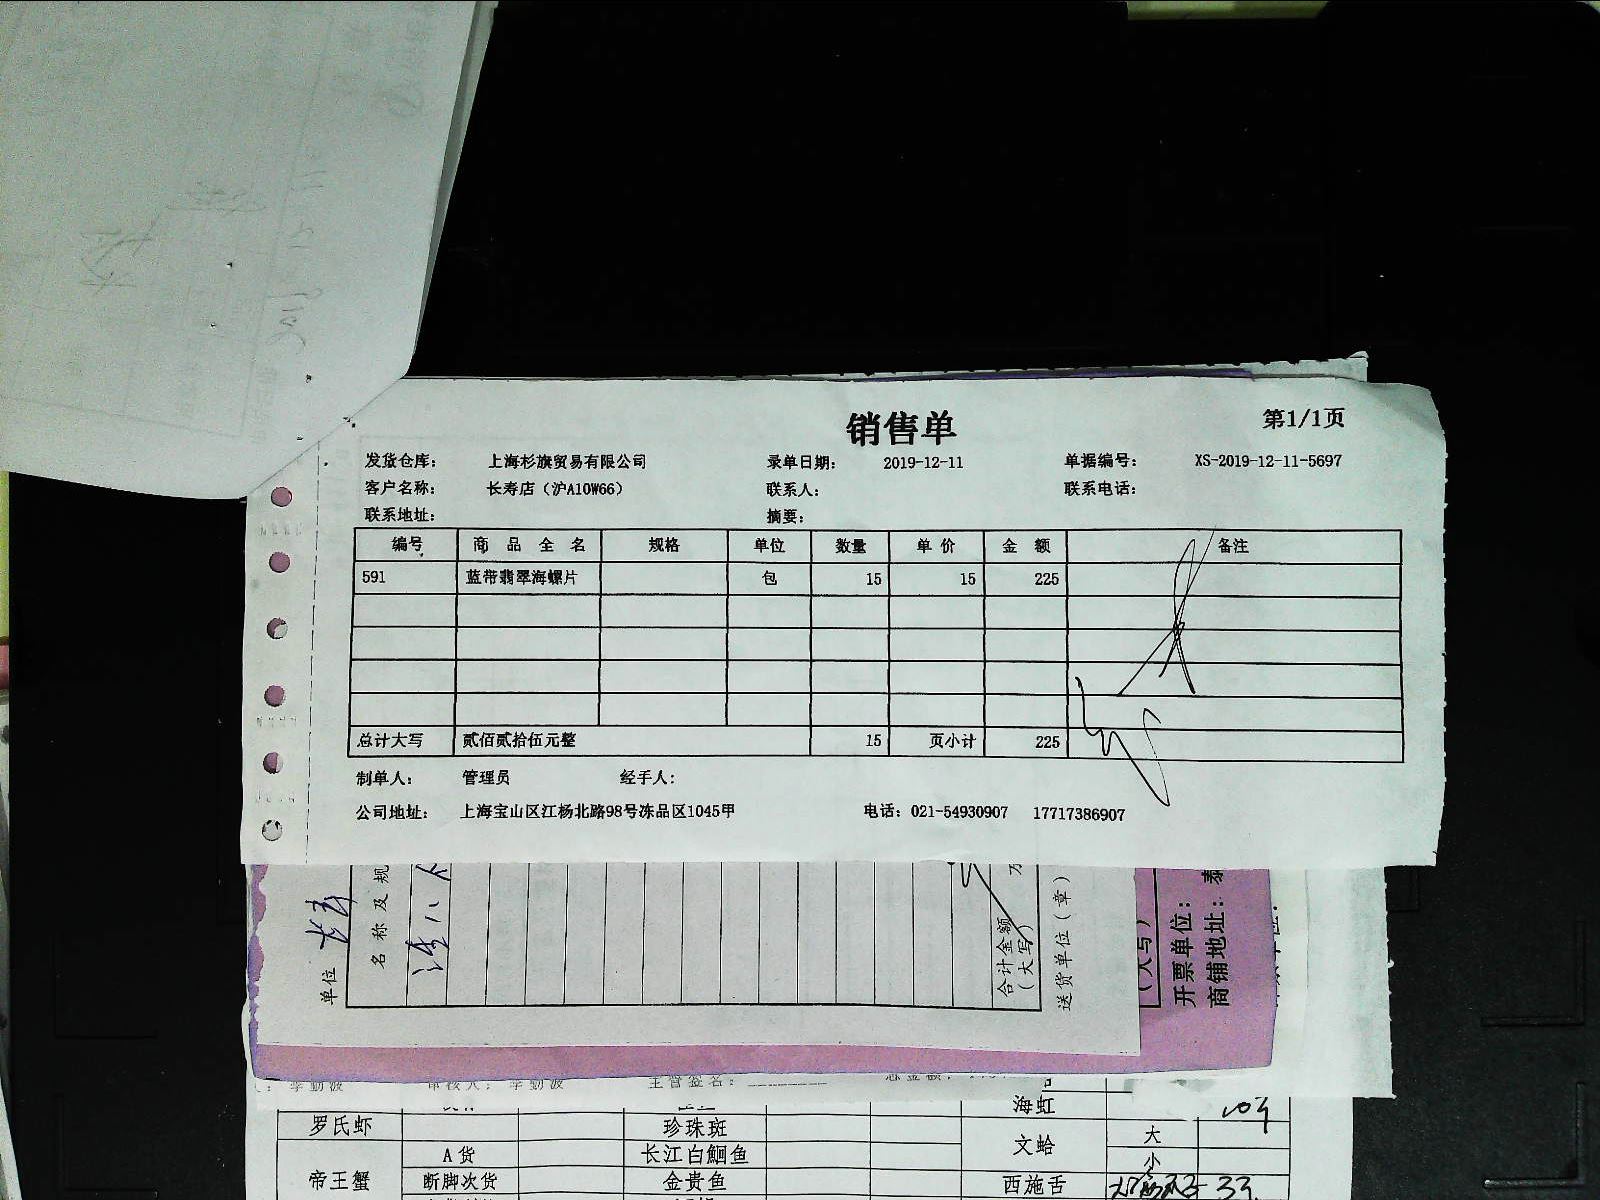 销售单
第1/1页
发货仓库： 上海杉旗贸易有限公司 录单日期： 2019-12-11 单据编号： XS-2019-12-11-5697
客户名称： 长寿店（沪A10W66） 联系人： 联系电话：
联系地址： 摘要：
编号 商品全名 规格 单位 数量 单价 金额 备注
591 蓝带翡翠海螺片 包 15 15 225
总计大写 贰佰贰拾伍元整 15 页小计 225
制单人： 管理员 经手人：
公司地址： 上海宝山区江杨北路98号冻品区1045甲 电话：021-54930907 17717386907
单位
名称及规
合计金额
（大写）
送货单位（章）
（大写）
开票单位：
商铺地址： 泰
李勤波 审核人： 李勤波 主管签名：
海虹
罗氏虾 珍珠斑 文蛤 大
A货 长江白鮰鱼 小
帝王蟹 断脚次货 金贵鱼 西施舌